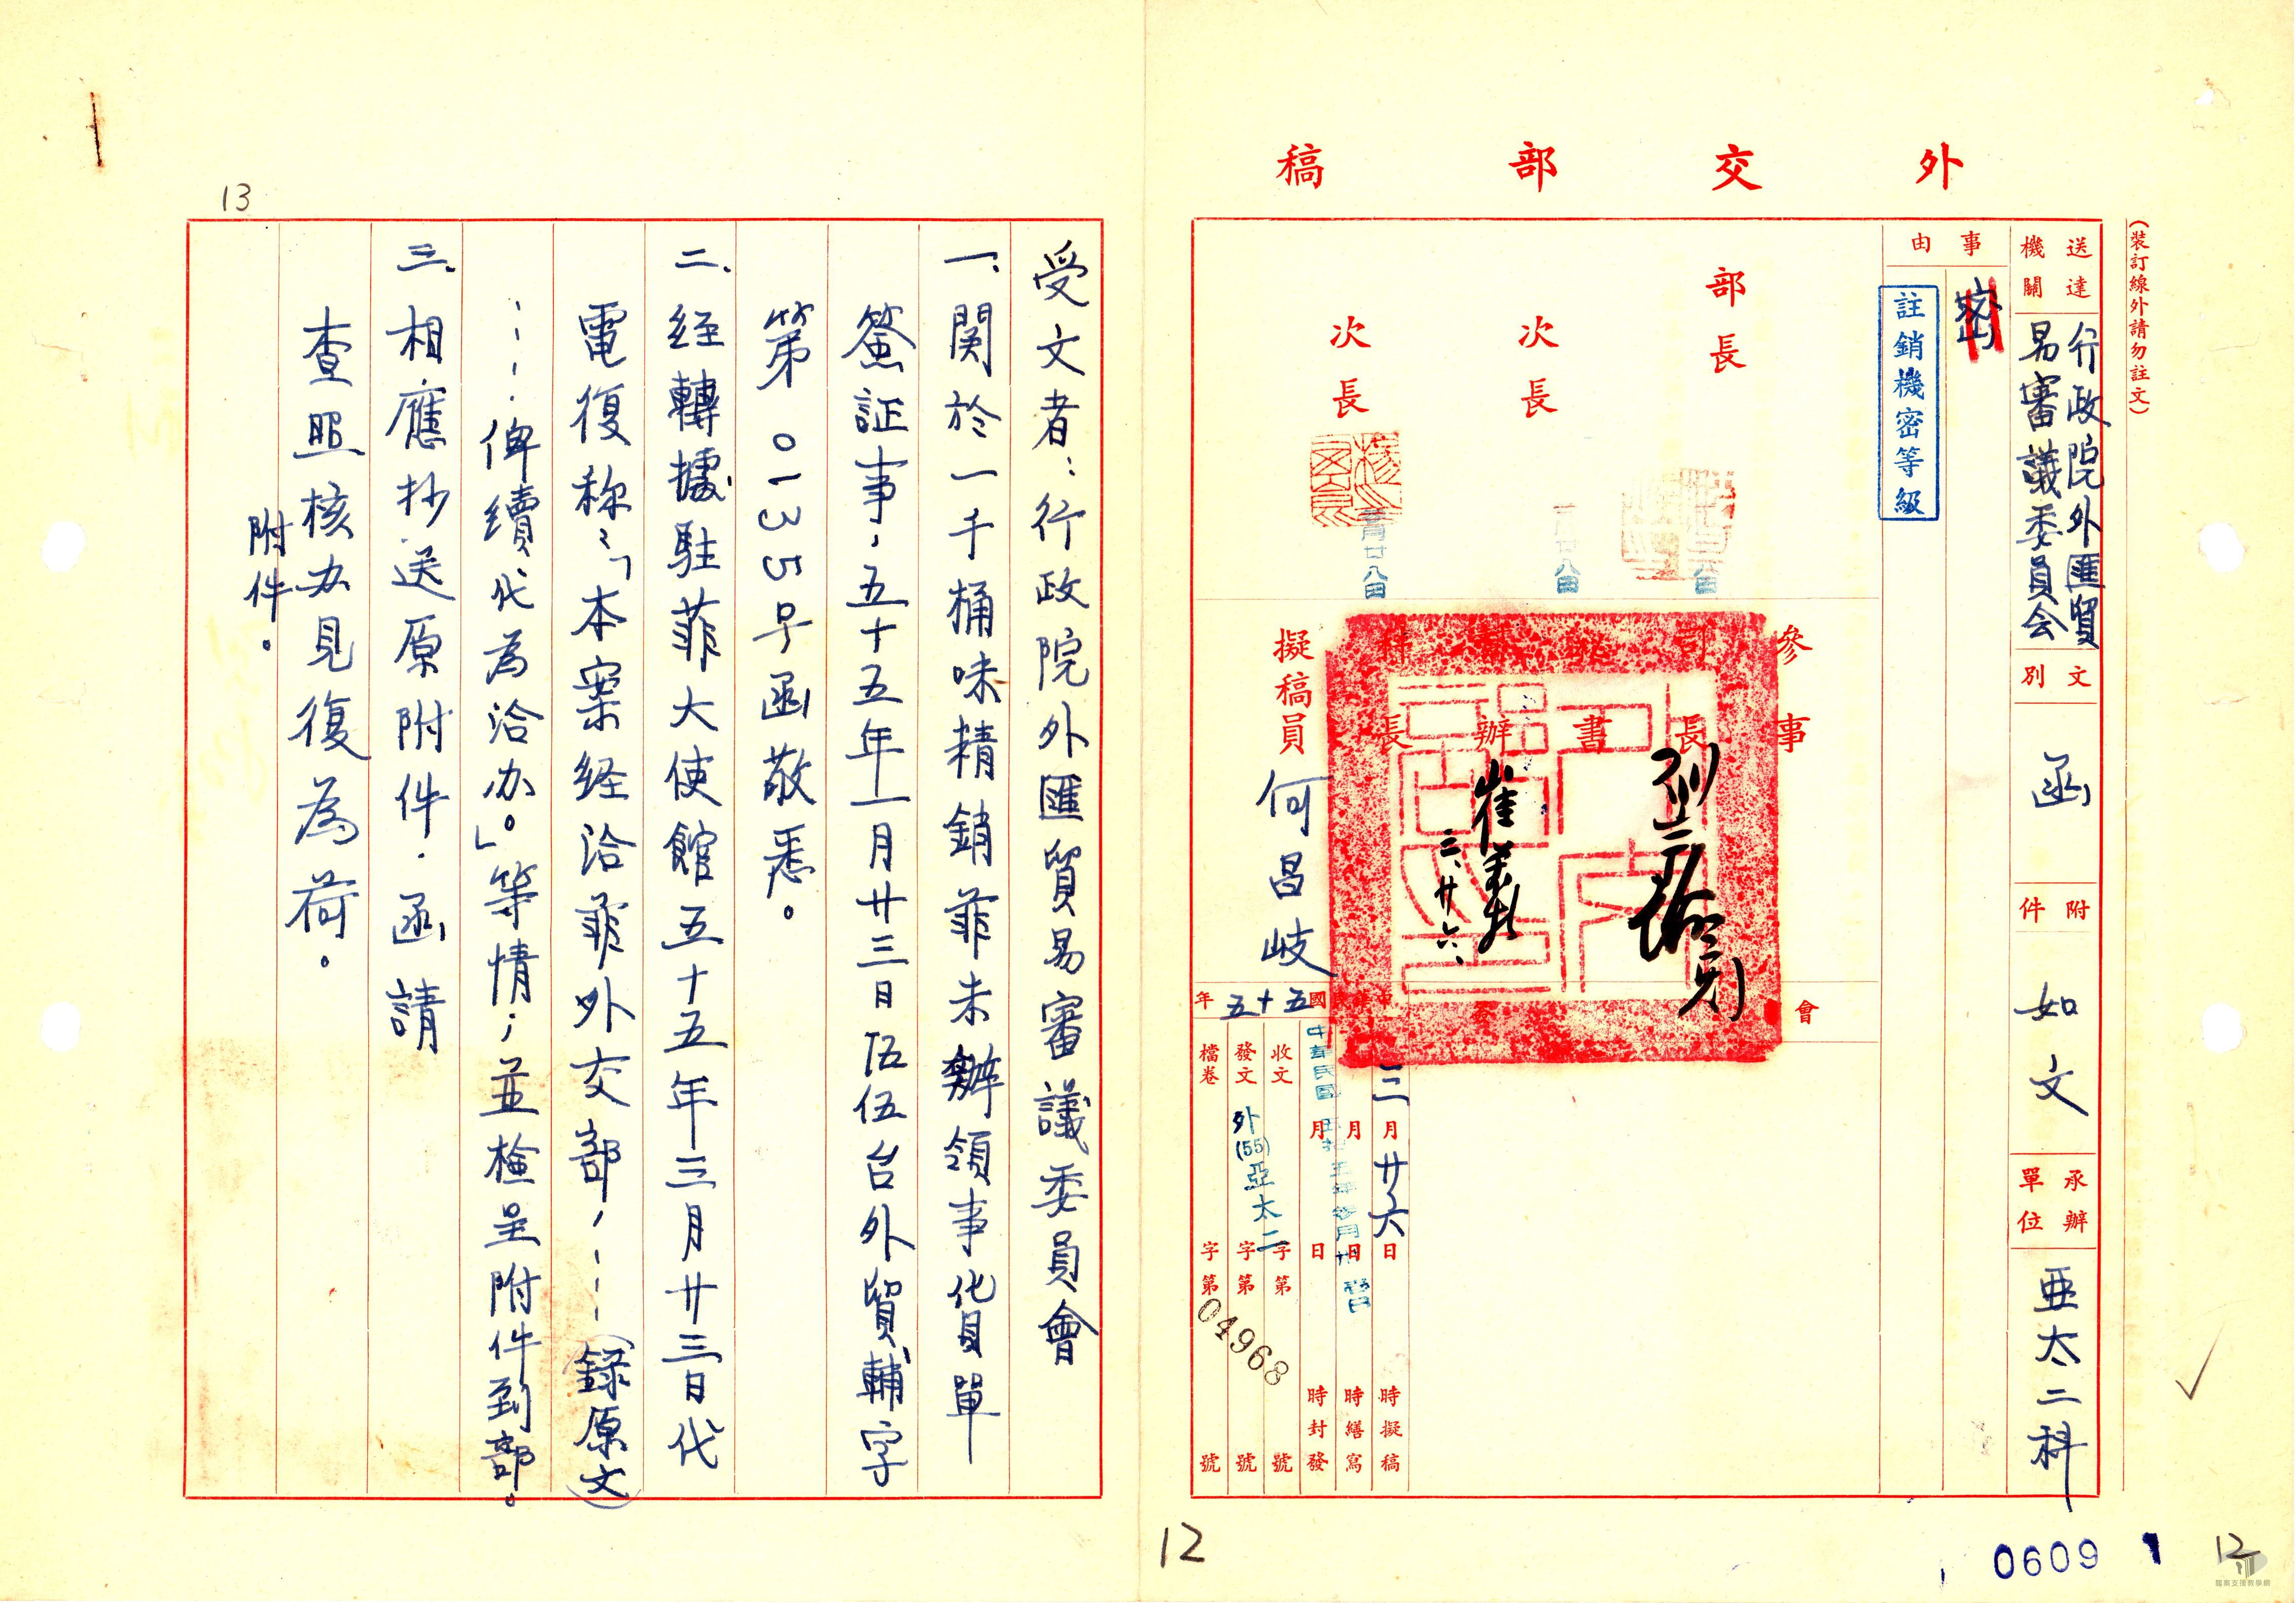 外交部稿
（裝訂線外請勿註文）
送達機關
行政院外匯貿
易審議委員会
文別
函
附件
如文
承辦單位
亞太二科
事由
密
註銷機密等級
部長
次長
次長
廿八
廿八
參事
司長
秘書
幫辦
科長
擬稿員
何昌岐
崔
三、廿六、
會
中華民國五十五年
三月廿六日時擬稿
月日時繕寫
月日時封發
中華民國
收文字第號
發文外(55)亞太二字第號
檔卷字第號
04968
12
0609
1
12
13
受文者：行政院外匯貿易審議委員會
一、関於一千桶味精銷菲未辦領事貨單
簽証事，五十五年一月廿三日伍伍台外貿輔字
第0135号函敬悉。
二、経轉據駐菲大使館五十五年三月廿三日代
電復称：「本案経洽菲外交部，……（錄原文）
……俾續代為洽办。」等情；並檢呈附件到部。
三、相應抄送原附件，函請
查照核办見復為荷。
附件。
檔案支援教學網